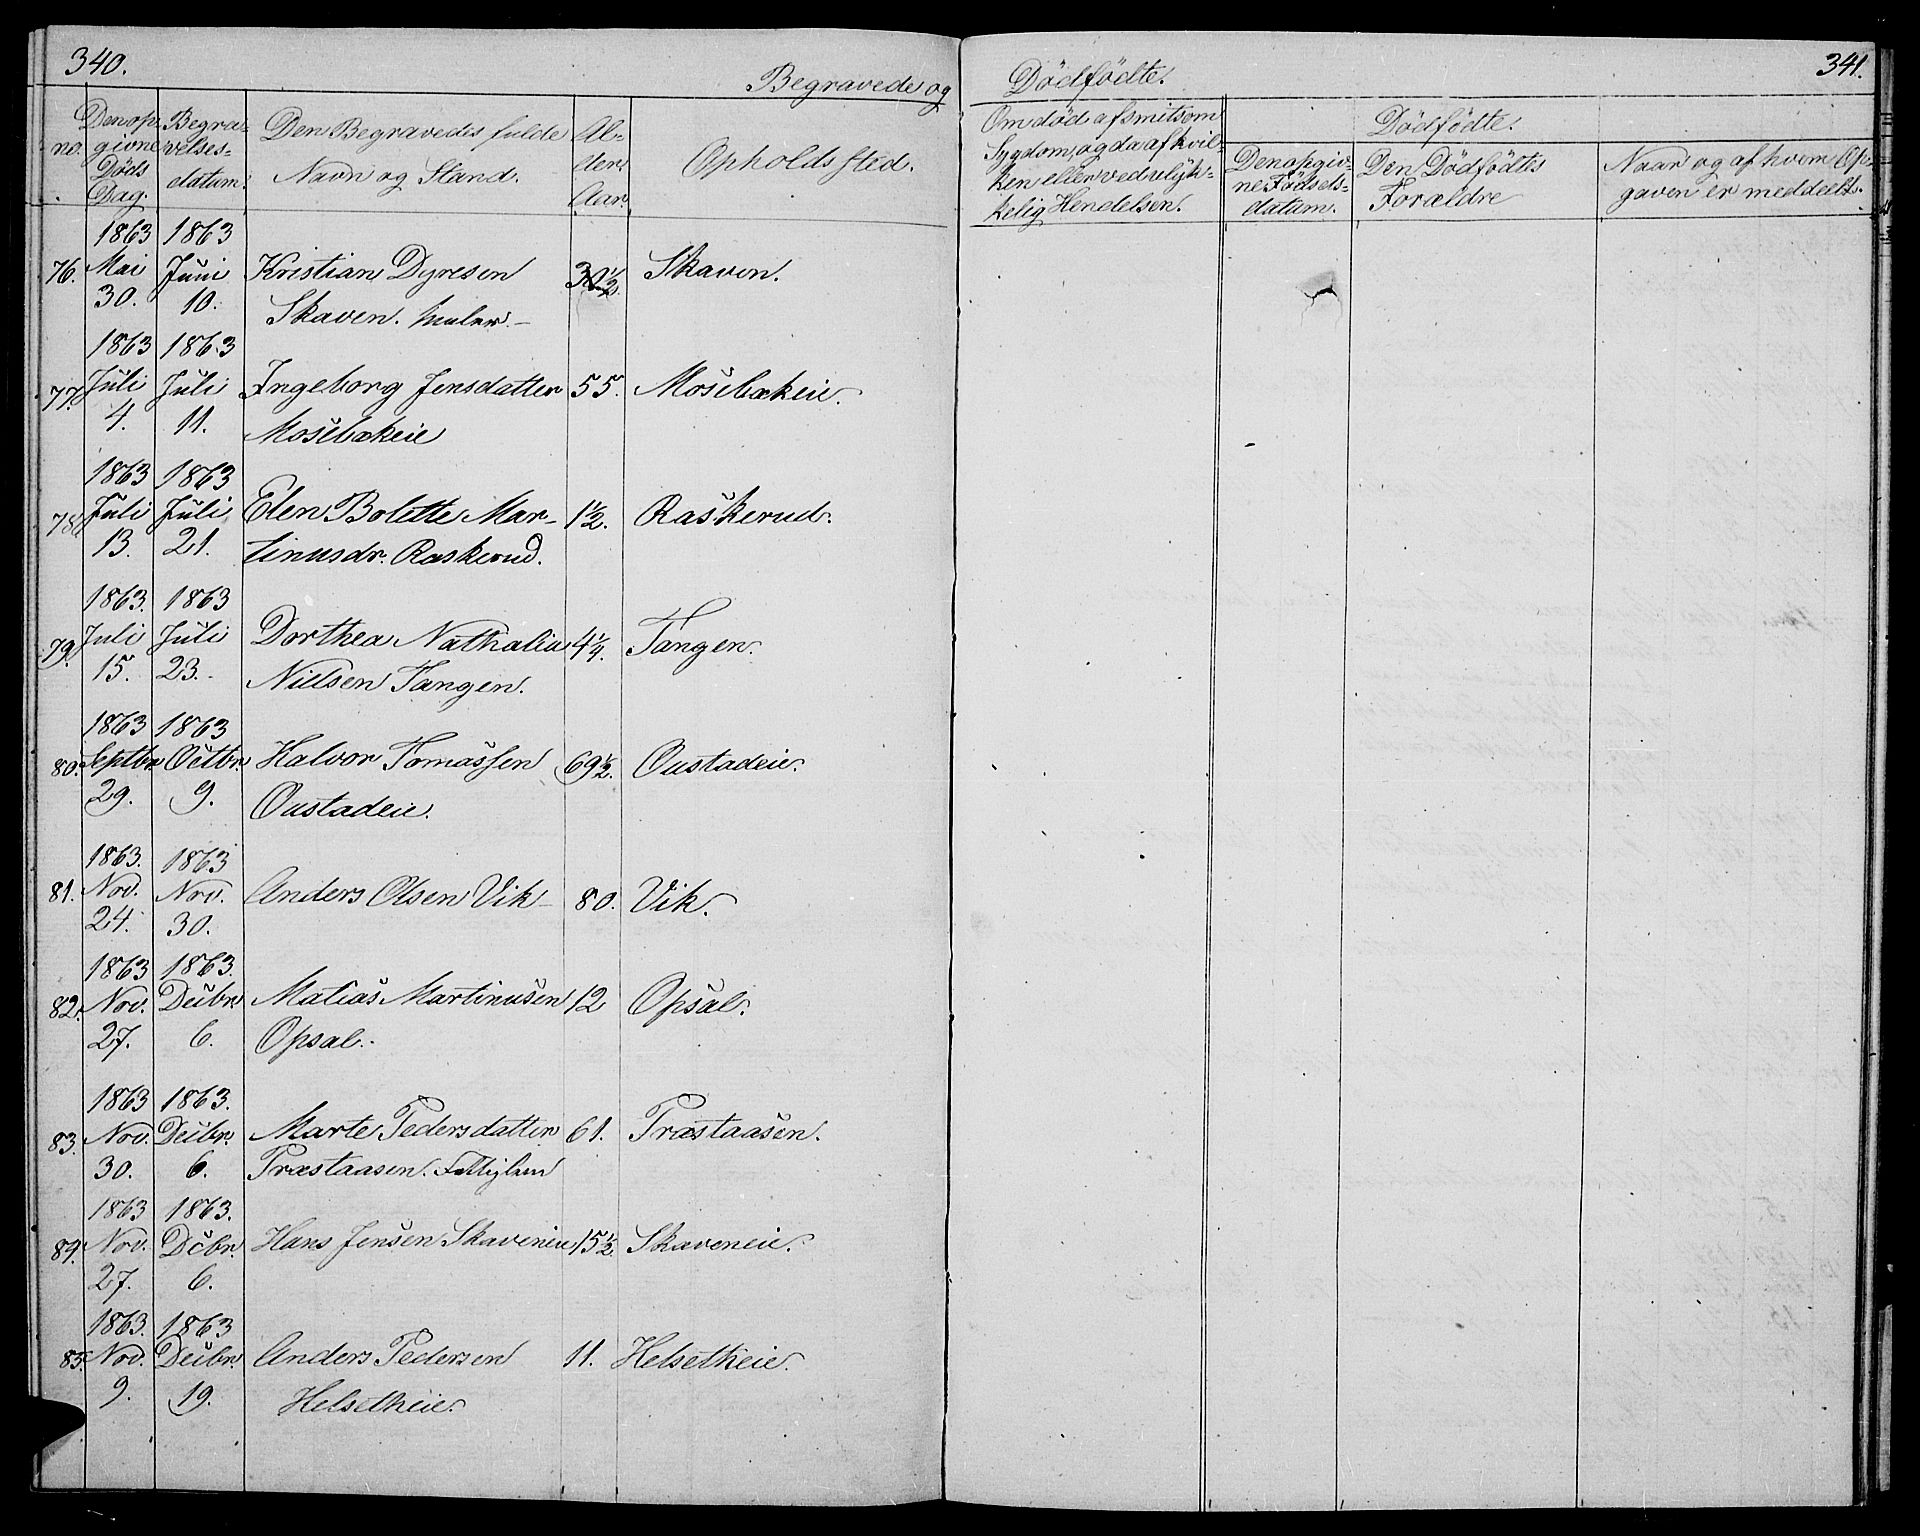 340.
Begravede og
Denop- Begra- Den Begravedes fulde Al-
no. givne velses- der.
Døds datum. Navn og Stand. Opholdssted.
Dag. Aar.
1863 1863
76. Mai Juni Kristian Dyresen Skaven.
30. 10. Skaven.
1863 1863
77. Juli Juli Ingeborg Jensdatter 55. Mosebækeie.
4. 11. Mosebækeie
1863 1863
78. Juli Juli Elen Bolette Mar- 1½. Raskerud.
13. 21. tinusdr. Raskerud.
1863. 1863
79. Juli Juli Dorthea Nathalia 4¼. Tangen.
15. 23. Nielsen Tangen.
1863 1863
80. Septbr. Octbr. Halvor Tomassen 69½. Oustadeie.
29. 9. Oustadeie.
1863. 1863
81. Nov. Nov. Anders Olsen Vik 80. Vik.
24. 30.
1863 1863.
82. Nov. Decbr. Matias Martinusen 12 Opsal.
27. 6. Opsal.
1863 1863.
83. Nov. Decbr. Marte Pedersdatter 61. Præstaasen.
30. 6. Præstaasen. Fattiglem
1863 1863.
84. Nov. Dcbr. Hans Jensen Skaveneie 15½. Skaveneie.
27. 6.
1863. 1863
85. Nov. Decbr. Anders Pedersen 11. Helsetheie.
9. 19. Helsetheie.
341.
Dødfødte.
Om død af smitsom Dødfødte.
Sygdom, og da af hvil- Den opgiv- Den Dødfødtes Naar og af hvem Op-
ken eller ved ulyk- ne Fødsels- Forældre gaven er meddeelt.
kelig Hendelsen. datum.